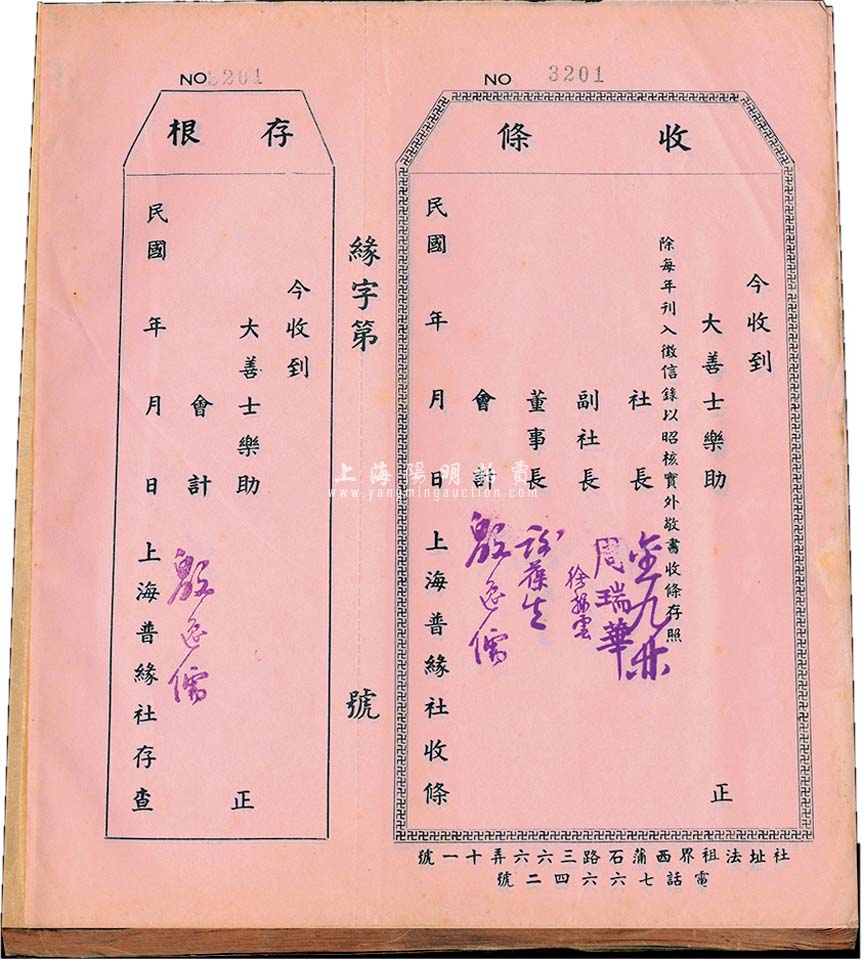 NO 3201
收條
今收到
大善士樂助 正
除每年刊入徵信錄以昭核實外敬書收條存照
社長
副社長 周瑞華
董事長
會計 殷逸儒
民國 年 月 日 上海普緣社收條
社址法租界西蒲石路三六六弄十一號
電話七六六四二號
緣字第 號
NO 3201
存根
今收到
大善士樂助 正
會計 殷逸儒
民國 年 月 日 上海普緣社存查
上海陽明拍賣
www.yangmingauction.com